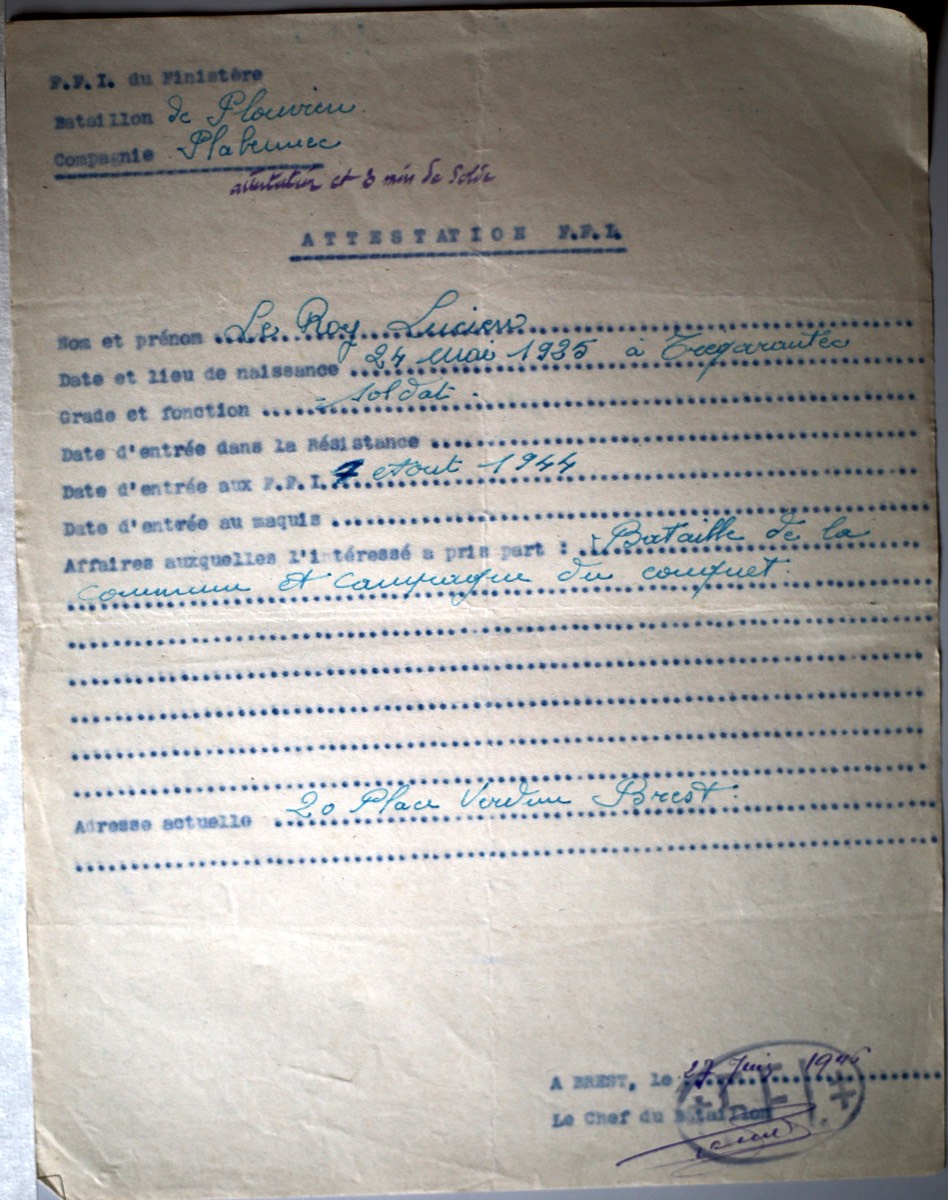 F.F.I. du Finistère
Bataillon de Plouvien
Compagnie Plabennec
attestation et 3 mois de Solde
ATTESTATION F.F.I.
Nom et prénom Le Roy Lucien
Date et lieu de naissance 24 mai 1925 à Tregarantec
Grade et fonction soldat.
Date d'entrée dans la Résistance
Date d'entrée aux F.F.I. Aout 1944
Date d'entrée au maquis
Affaires auxquelles l'intéressé a pris part : Bataille de la
commune et campagne du conquet.
Adresse actuelle 20 Place Verdun Brest.
A BREST, le 27 Juin 1946
Le Chef du Bataillon
F.F.I.